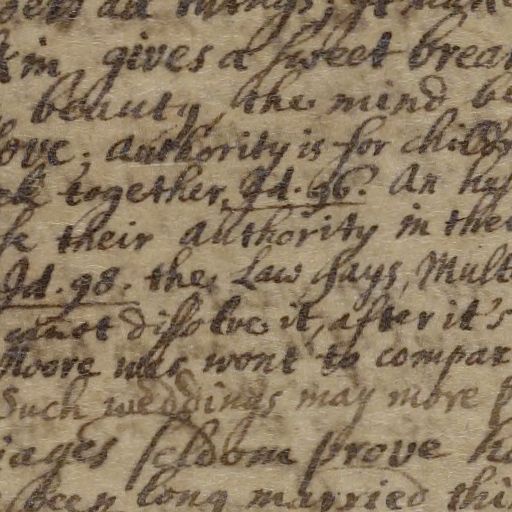 all things,
gives a sweet breat
beauty, the mind be
love; authority is for child
together, Id. 96. An hus
their authority in the
Id. 98. the Law says, Mult
must dissolve it, after it's
Moore was wont to compar
Such weddings may more
iages seldom prove ha
been long married thi